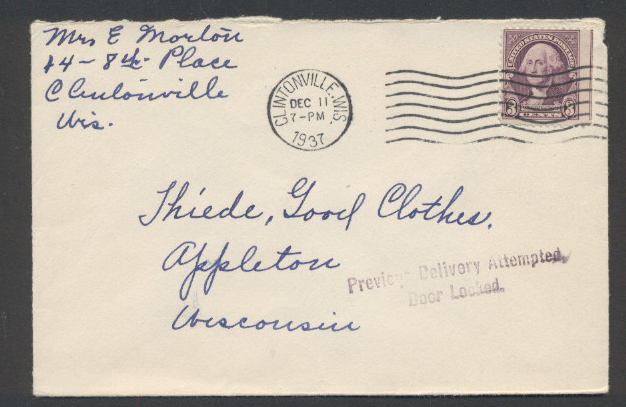 Mrs E Morton
14 - 8th Place
Clintonville
Wis.
CLINTONVILLE, WIS.
DEC 11
7-PM
1937
UNITED STATES POSTAGE
3 3
Thiede, Good Clothes.
Appleton
Wisconsin
Previous Delivery Attempted,
Door Locked.